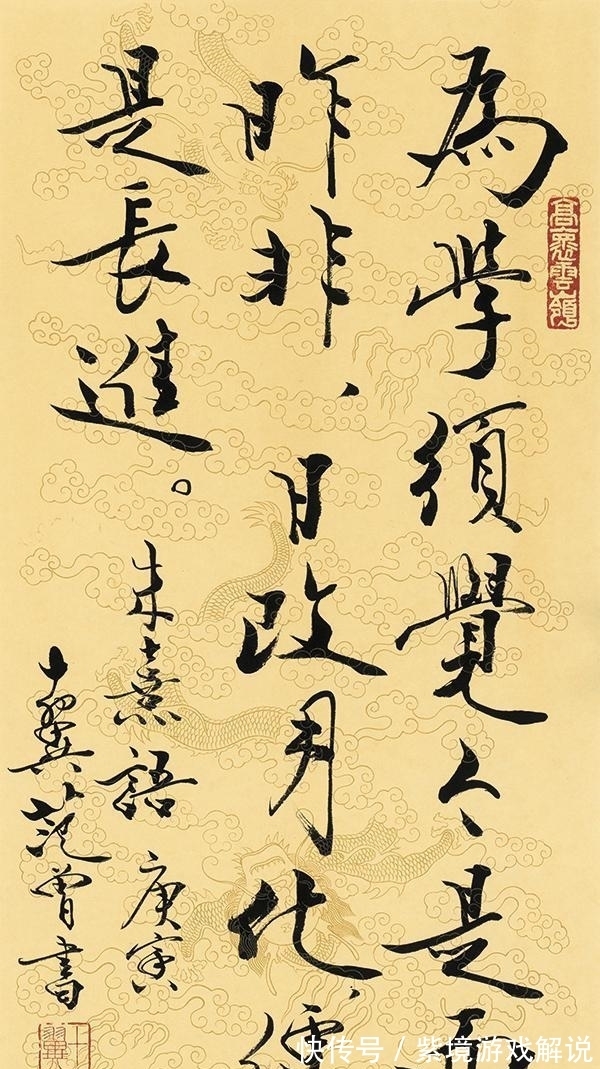 為學須覺今是而
昨非、日改月化、便
是長進。
朱熹語 庚寅
十翼范曾書
十翼
快传号 / 紫境游戏解说